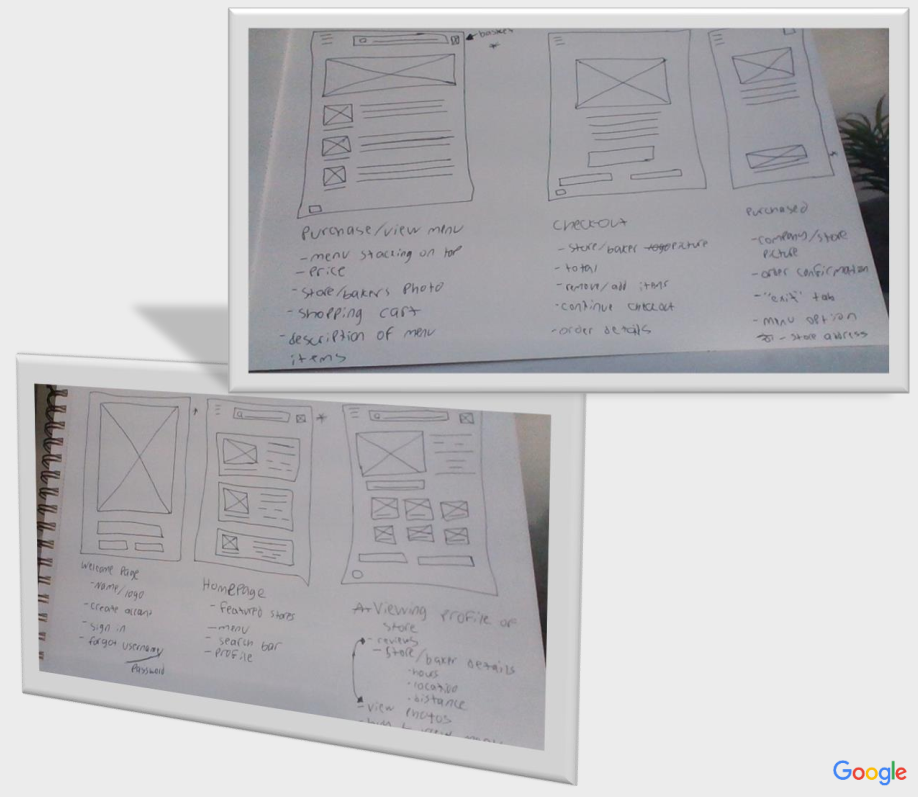 basket
*
Purchase/view menu
- menu stacking on top
- Price
- Store/bakers Photo
- shopping cart
- description of menu
items
Checkout
- store/baker picture
- total
- remove/add items
- continue checkout
- order details
Purchased
- company/store
picture
- order confirmation
- "exit" tab
- menu option
- store address
Welcome Page
- name/logo
- create account
- sign in
- forgot username/
Password
Homepage
- Featured stores
- menu
- search bar
- Profile
Viewing profile of
store
- reviews
- Store/baker details
- hours
- location
- distance
- view photos
Google